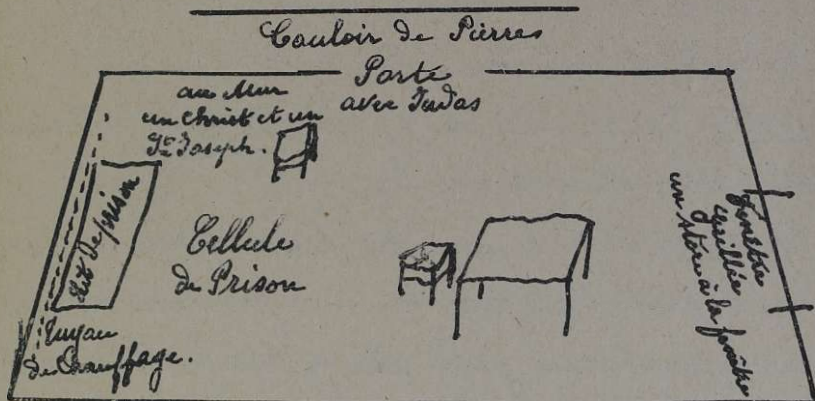 Couloir de Pierres
Porte
avec Judas
au Mur
un Christ et un
St Joseph.
Lit de prison
Cellule
de Prison
Tuyau
de Chauffage.
fenêtre
grillée
un store à la fenêtre